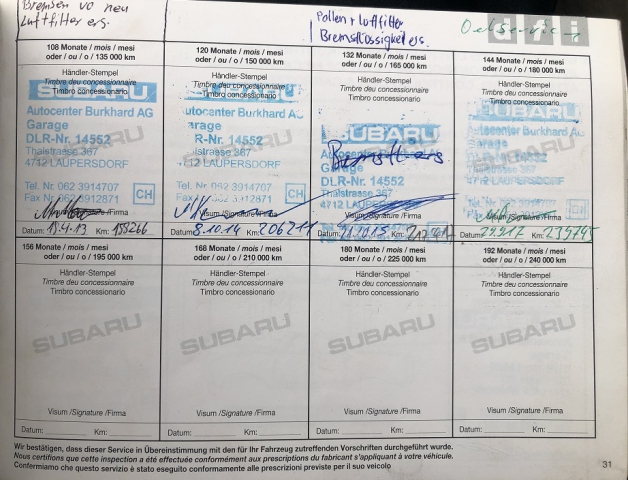 Bremsen vo neu
Luftfilter ers.
Pollen + Luftfilter
Bremsflüssigkeit ers.
Oelservice
d f i
108 Monate / mois / mesi
oder / ou / o / 135 000 km
Händler-Stempel
Timbre du concessionnaire
Timbro concessionario
SUBARU
Autocenter Burkhard AG
Garage
DLR-Nr. 14552
Thalstrasse 367
4712 LAUPERSDORF
Tel. Nr. 062 3914707
Fax Nr. 062 3912871
CH
/Firma
Datum: 15.4.13 Km:
120 Monate / mois / mesi
oder / ou / o / 150 000 km
Händler-Stempel
Timbre du concessionnaire
Timbro concessionario
utocenter Burkhard AG
arage
R-Nr. 14552
Thalstrasse 367
4712 LAUPERSDORF
Tel. Nr. 062 3914707
Visum /Signature /Firma
Datum: 8.10.14 Km: 206211
132 Monate / mois / mesi
oder / ou / o / 165 000 km
Händler-Stempel
Timbre du concessionnaire
Timbro concessionario
SUBARU
Garage
DLR-Nr. 14552
Thalstrasse 367
4712
Visum /Signature /Firma
Datum: Km:
144 Monate / mois / mesi
oder / ou / o / 180 000 km
Händler-Stempel
Timbre du concessionnaire
Timbro concessionario
SUBARU
Autocenter Burkhard AG
Garage
DLR-Nr. 14552
Thalstrasse 367
4712 LAUPERSDORF
Tel. Nr. 062 3914707
Datum: Km: 239745
156 Monate / mois / mesi
oder / ou / o / 195 000 km
Händler-Stempel
Timbre du concessionnaire
Timbro concessionario
SUBARU
Visum /Signature /Firma
Datum: Km:
168 Monate / mois / mesi
oder / ou / o / 210 000 km
Händler-Stempel
Timbre du concessionnaire
Timbro concessionario
SUBARU
Visum /Signature /Firma
Datum: Km:
180 Monate / mois / mesi
oder / ou / o / 225 000 km
Händler-Stempel
Timbre du concessionnaire
Timbro concessionario
SUBARU
Visum /Signature /Firma
Datum: Km:
192 Monate / mois / mesi
oder / ou / o / 240 000 km
Händler-Stempel
Timbre du concessionnaire
Timbro concessionario
SUBARU
Visum /Signature /Firma
Datum: Km:
Wir bestätigen, dass dieser Service in Übereinstimmung mit den für Ihr Fahrzeug zutreffenden Vorschriften durchgeführt wurde.
Nous certifions que cette inspection a été effectuée conformément aux prescriptions du fabricant s'appliquant à votre véhicule.
Confermiamo che questo servizio è stato eseguito conformamente alle prescrizioni previste per il suo veicolo
31